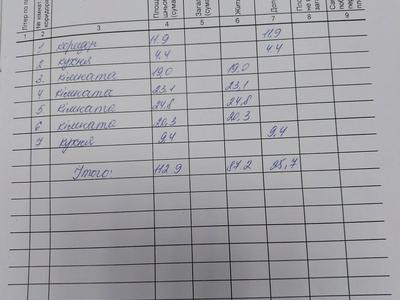 1 2 3 4 5 6 7 8 9
1 коридор 11.9 11.9
2 кухня 4.4 4.4
3 кімната 19,0 19,0
4 кімната 23,1 23,1
5 кімната 24,8 24,8
6 кімната 20,3 20.3
7 кухня 9,4 9,4
Итого: 112.9 87.2 25,7